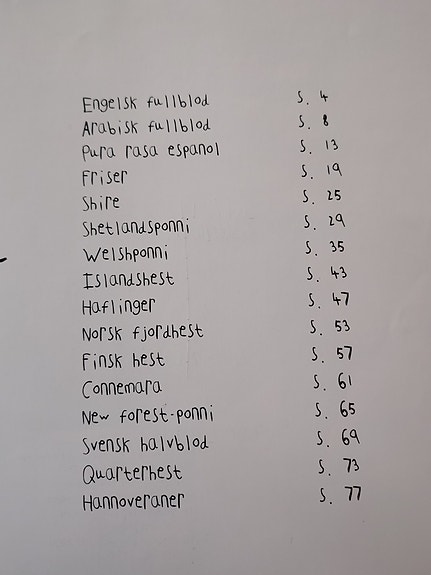 Engelsk fullblod s. 4
Arabisk fullblod s. 8
Pura rasa espanol s. 13
Friser s. 19
Shire s. 25
Shetlandsponni s. 29
Welshponni s. 35
Islandshest s. 43
Haflinger s. 47
Norsk fjordhest s. 53
Finsk hest s. 57
Connemara s. 61
New forest-ponni s. 65
Svensk halvblod s. 69
Quarterhest s. 73
Hannoveraner s. 77